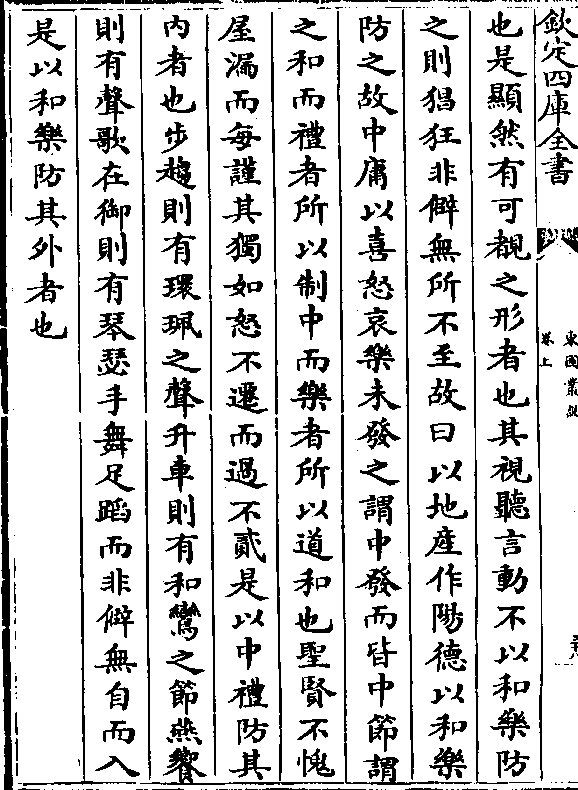 欽定四庫全書
東園叢說
卷上
也是顯然有可覩之形者也其視聽言動不以和樂防
之則猖狂非僻無所不至故曰以地産作陽德以和樂
防之故中庸以喜怒哀樂未發之謂中發而皆中節謂
之和而禮者所以制中而樂者所以道和也聖賢不愧
屋漏而每謹其獨如怒不遷而過不貳是以中禮防其
内者也步趨則有環珮之聲升車則有和鸞之節燕饗
則有聲歌在御則有琴瑟手舞足蹈而非僻無自而入
是以和樂防其外者也